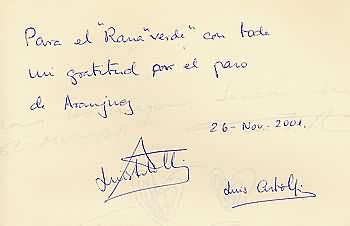 Para el "Rana" verde" con toda
mi gratitud por el paso
de Aranjuez
26-Nov-2001.
Luis